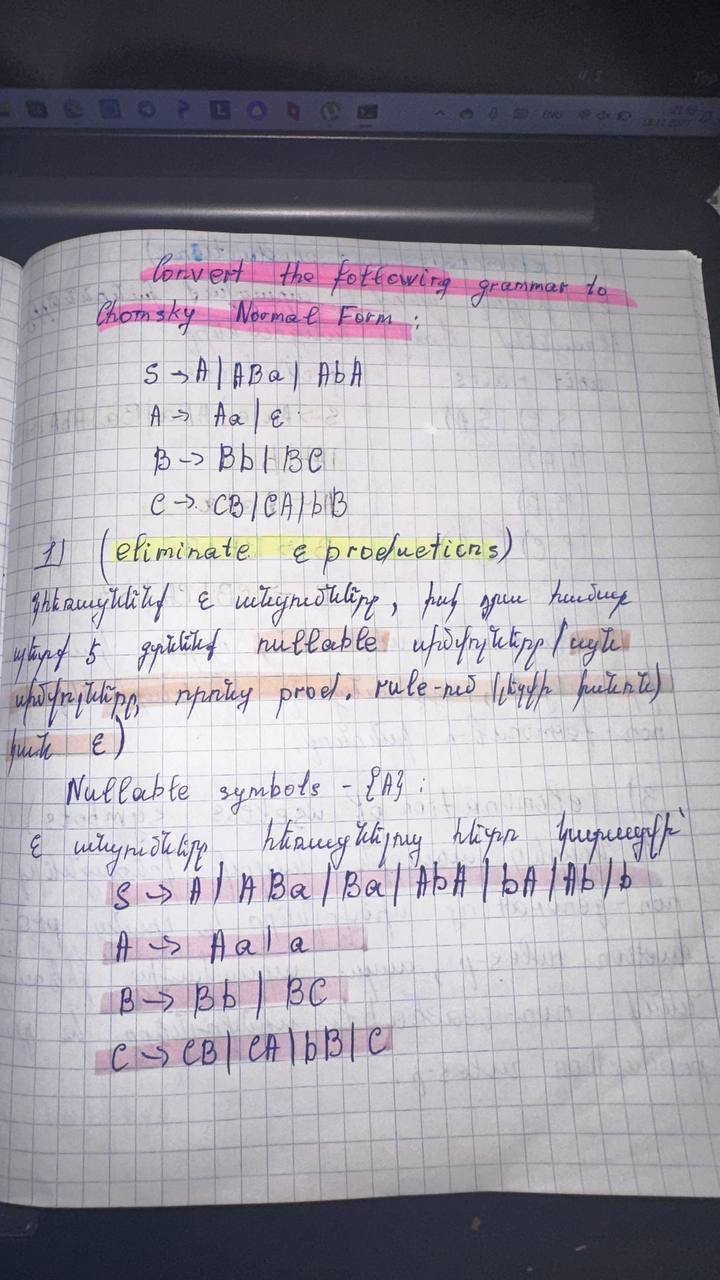 Convert the following grammar to
Chomsky Normal Form :
S → A | ABa | AbA
A → Aa | ε
B → Bb | BC
C → CB | CA | bB
1) (eliminate ε productions)
Հեռացնենք ε անցումները, իսկ դրա համար
պետք է գտնենք nullable սիմվոլները / այն
սիմվոլները, որոնց prod. rule-ում կա
ε)
Nullable symbols - {A} :
ε անցումները հեռացնելուց հետո կստացվի՝
S → A | ABa | Ba | AbA | bA | Ab | b
A → Aa | a
B → Bb | BC
C → CB | CA | bB | C